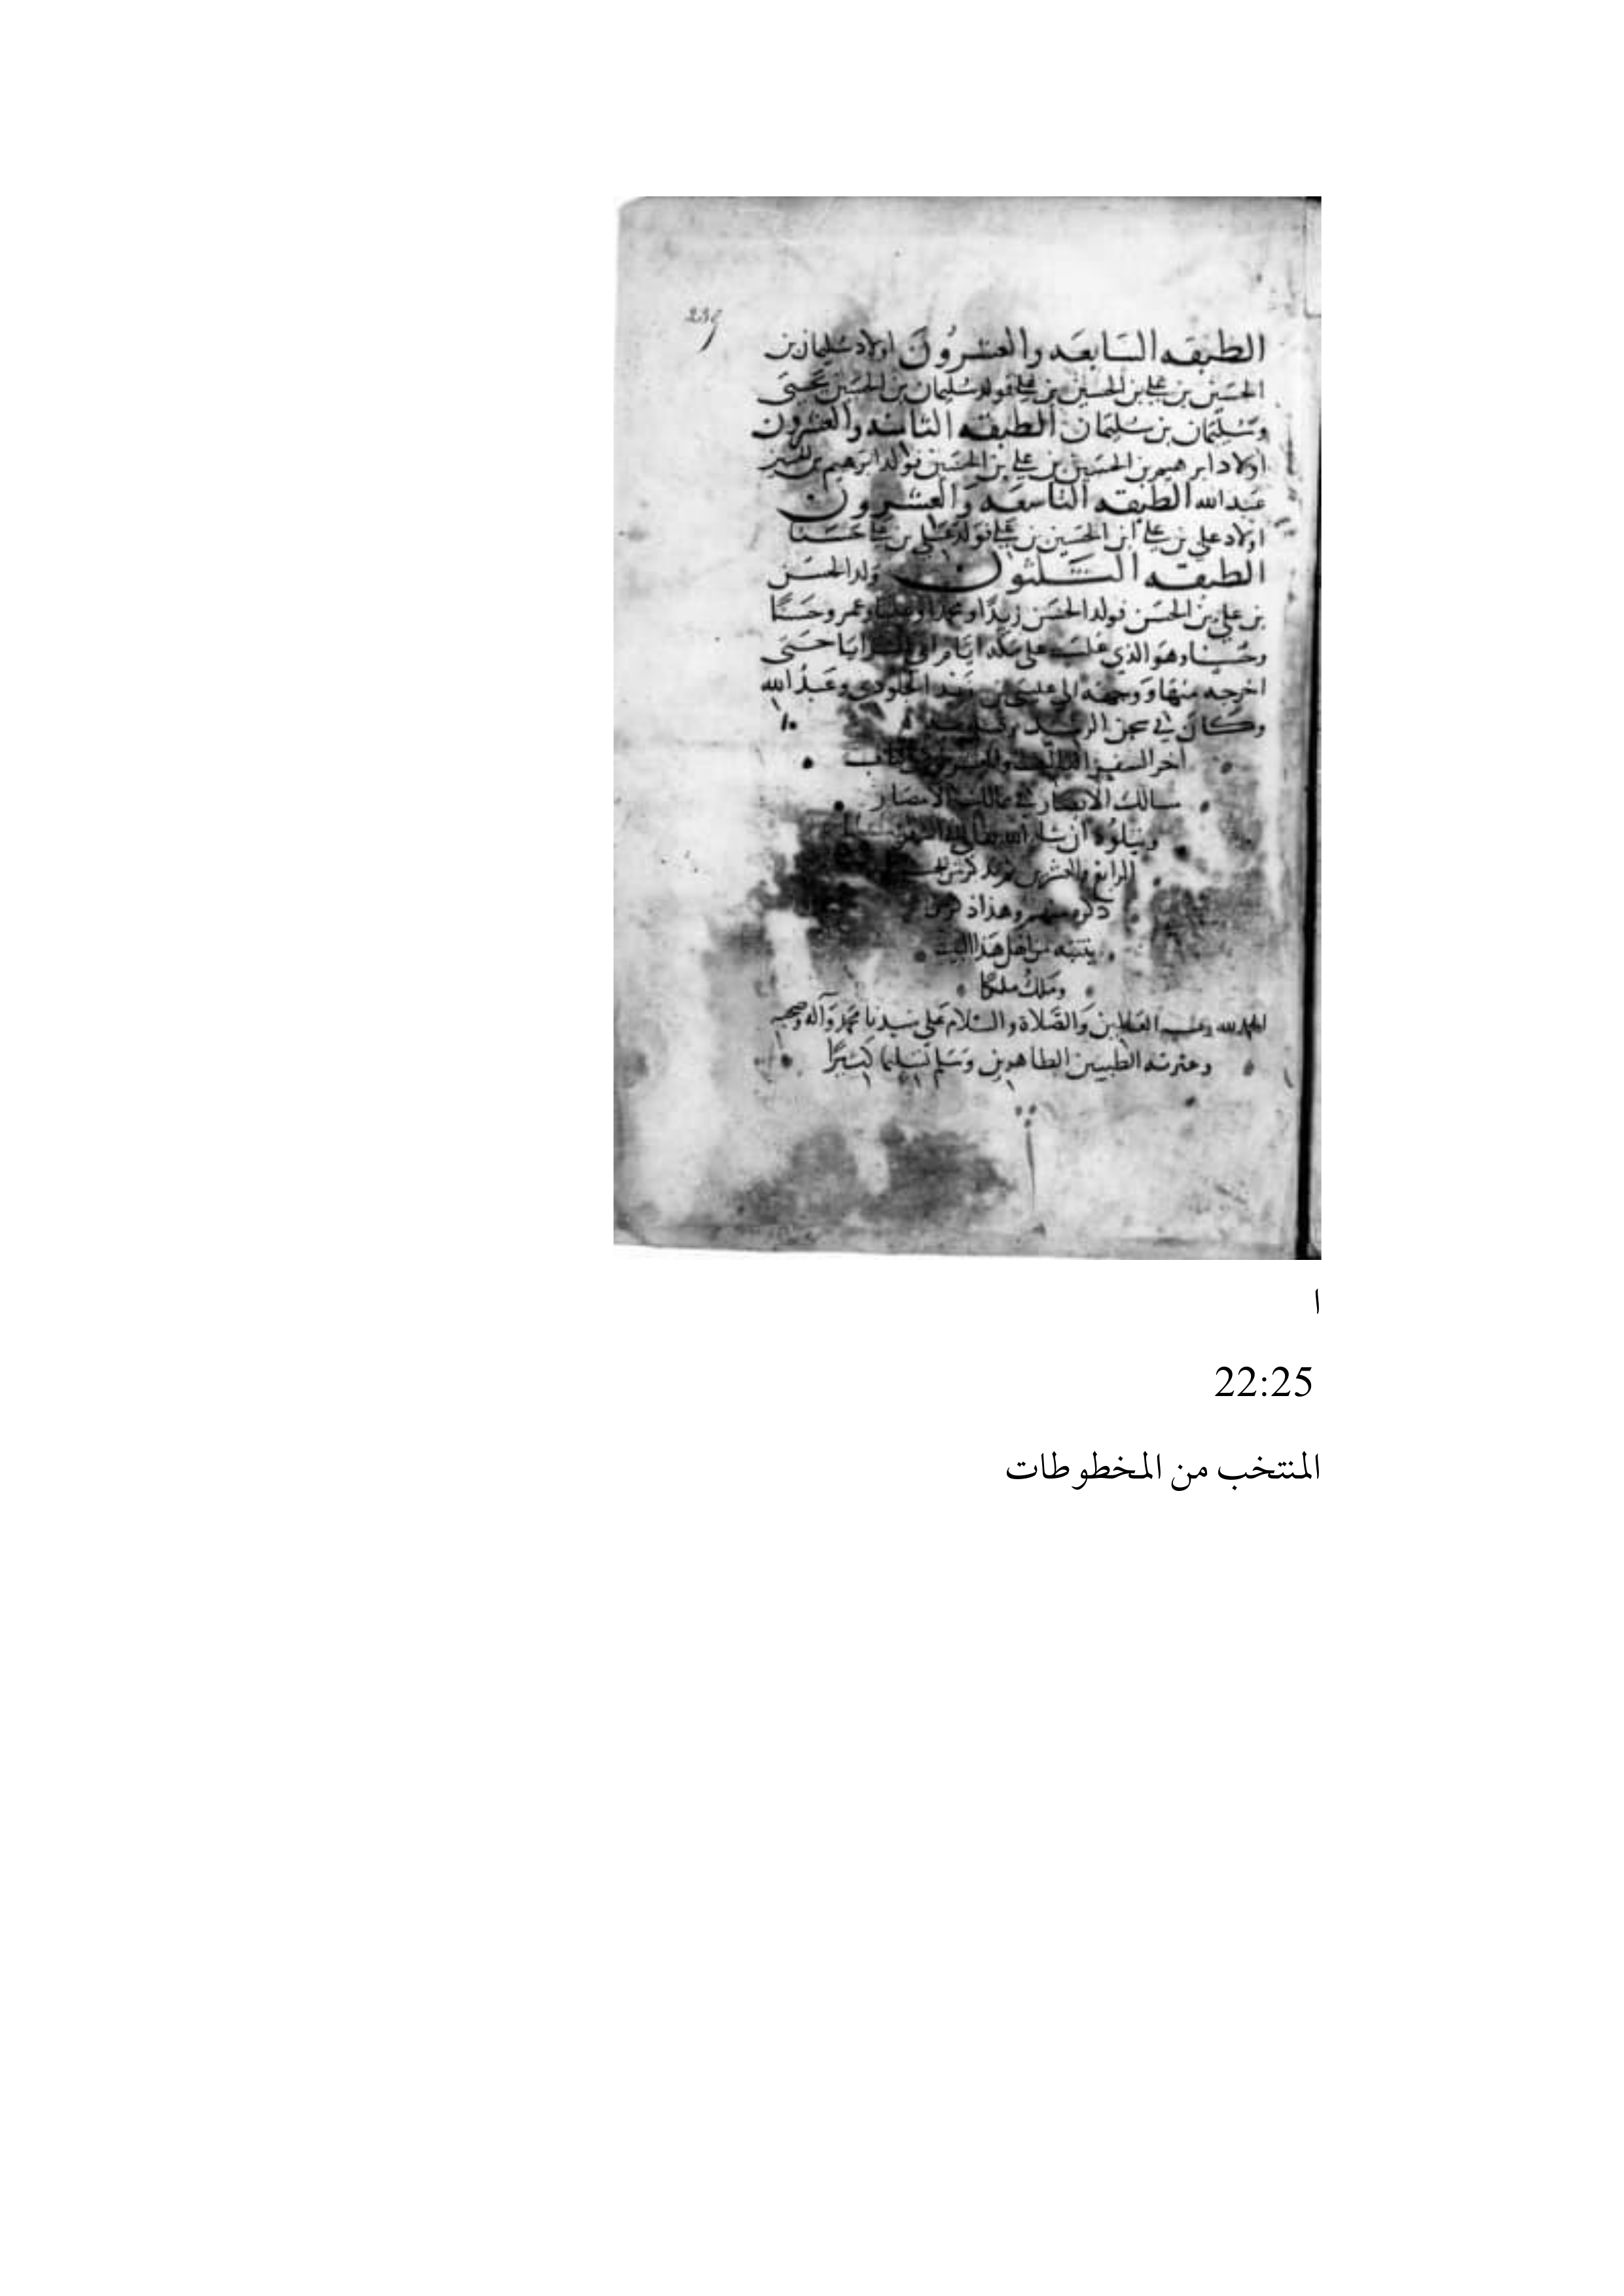 239
الطبقه السابعه والعشرون اولاد سليمان بن
الحسين بن علي بن الحسين بن علي فولد سليمان بن الحسين يحيى
وسليمان بن سليمان الطبقه الثامنه والعشرون
اولاد ابرهيم بن الحسين بن علي بن الحسين فولد ابرهيم بن الحسين
عبد الله الطبقه التاسعه والعشرون
اولاد علي بن علي ابن الحسين بن علي فولد علي بن علي حسنا
الطبقه الثلثون ولد الحسن
بن علي بن الحسن فولد الحسن زيدا ومحمدا وعليا وعمر وحسنا
وحسينا وهو الذي غلب على مكه ايام ابي السرايا حتى
اخرجه منها ووجهه الى عيسى بن يزيد الجلودي وعبد الله
وكان في سجن الرشيد
اخر السفر الثالث والعشرون من كتاب
مسالك الابصار في ممالك الامصار
ويتلوه ان شاء الله تعالى السفر
الرابع والعشرين
ذكره منهم وهذا ذكر من
ينتبه من اهل هذا البيت
وملك ملكا
الحمد لله رب العالمين والصلاة والسلام على سيدنا محمد وآله وصحبه
وعترته الطيبين الطاهرين وسلم تسليما كثيرا
ا
22:25
المنتخب من المخطوطات